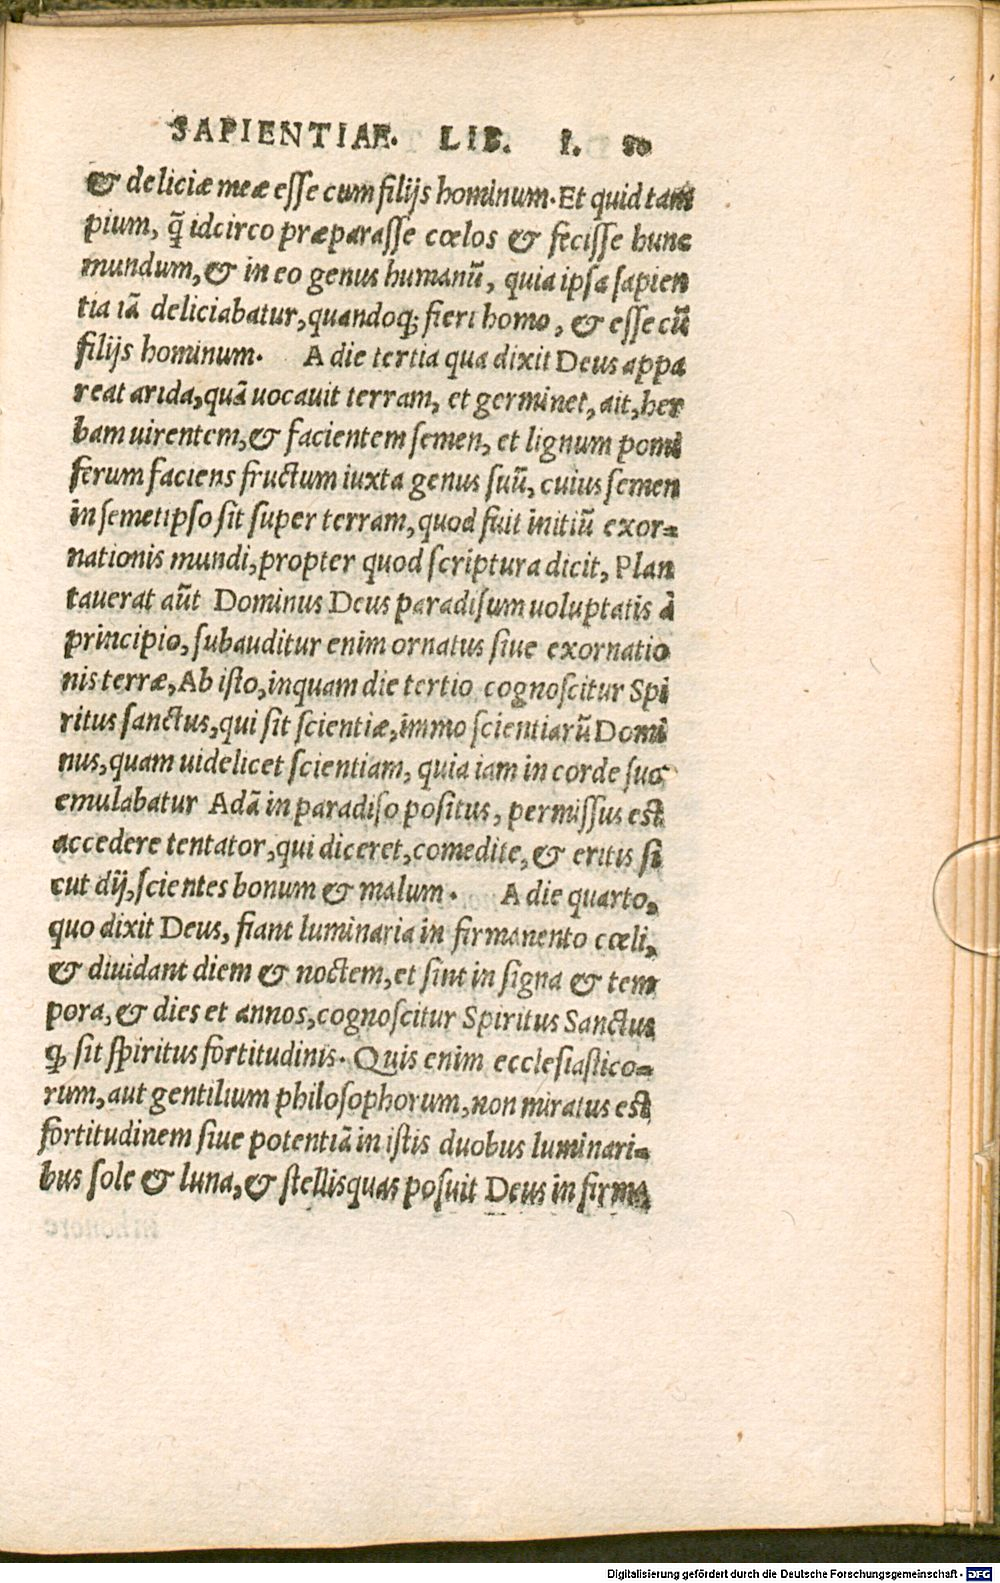 SAPIENTIAE. LIB. I. 80
& deliciæ meæ eſſe cum filijs hominum. Et quid tam
pium, q̃ idcirco præparaſſe cœlos & feciſſe hunc
mundum, & in eo genus humanũ, quia ipſa ſapien
tia iã deliciabatur, quandoq; fieri homo, & eſſe cũ
filijs hominum. A die tertia qua dixit Deus appa
reat arida, quã uocauit terram, et germinet, ait, her
bam uirentem, & facientem ſemen, et lignum pomi
ferum faciens fructum iuxta genus ſuũ, cuius ſemen
in ſemetipſo ſit ſuper terram, quod fuit initiũ exor=
nationis mundi, propter quod ſcriptura dicit, Plan
tauerat aũt Dominus Deus paradiſum uoluptatis à
principio, ſubauditur enim ornatus ſiue exornatio
nis terræ, Ab iſto, inquam die tertio cognoſcitur Spi
ritus ſanctus, qui ſit ſcientiæ, immo ſcientiarũ Domi
nus, quam uidelicet ſcientiam, quia iam in corde ſuo
emulabatur Adã in paradiſo poſitus, permiſſus est
accedere tentator, qui diceret, comedite, & eritis ſi
cut dij, ſcientes bonum & malum. A die quarto,
quo dixit Deus, fiant luminaria in firmamento cœli,
& diuidant diem & noctem, et ſint in ſigna & tem
pora, & dies et annos, cognoſcitur Spiritus Sanctus
q; ſit ſpiritus fortitudinis. Quis enim eccleſiaſtico=
rum, aut gentilium philoſophorum, non miratus est
fortitudinem ſiue potentiã in iſtis duobus luminari=
bus ſole & luna, & ſtellis quas poſuit Deus in firma
Digitalisierung gefördert durch die Deutsche Forschungsgemeinschaft - DFG